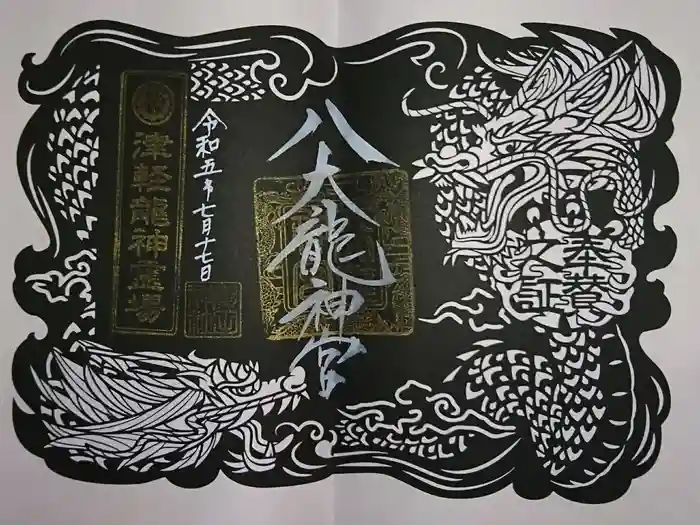 奉養
之証
八大龍神宮
令和五年七月十七日
津軽龍神霊場